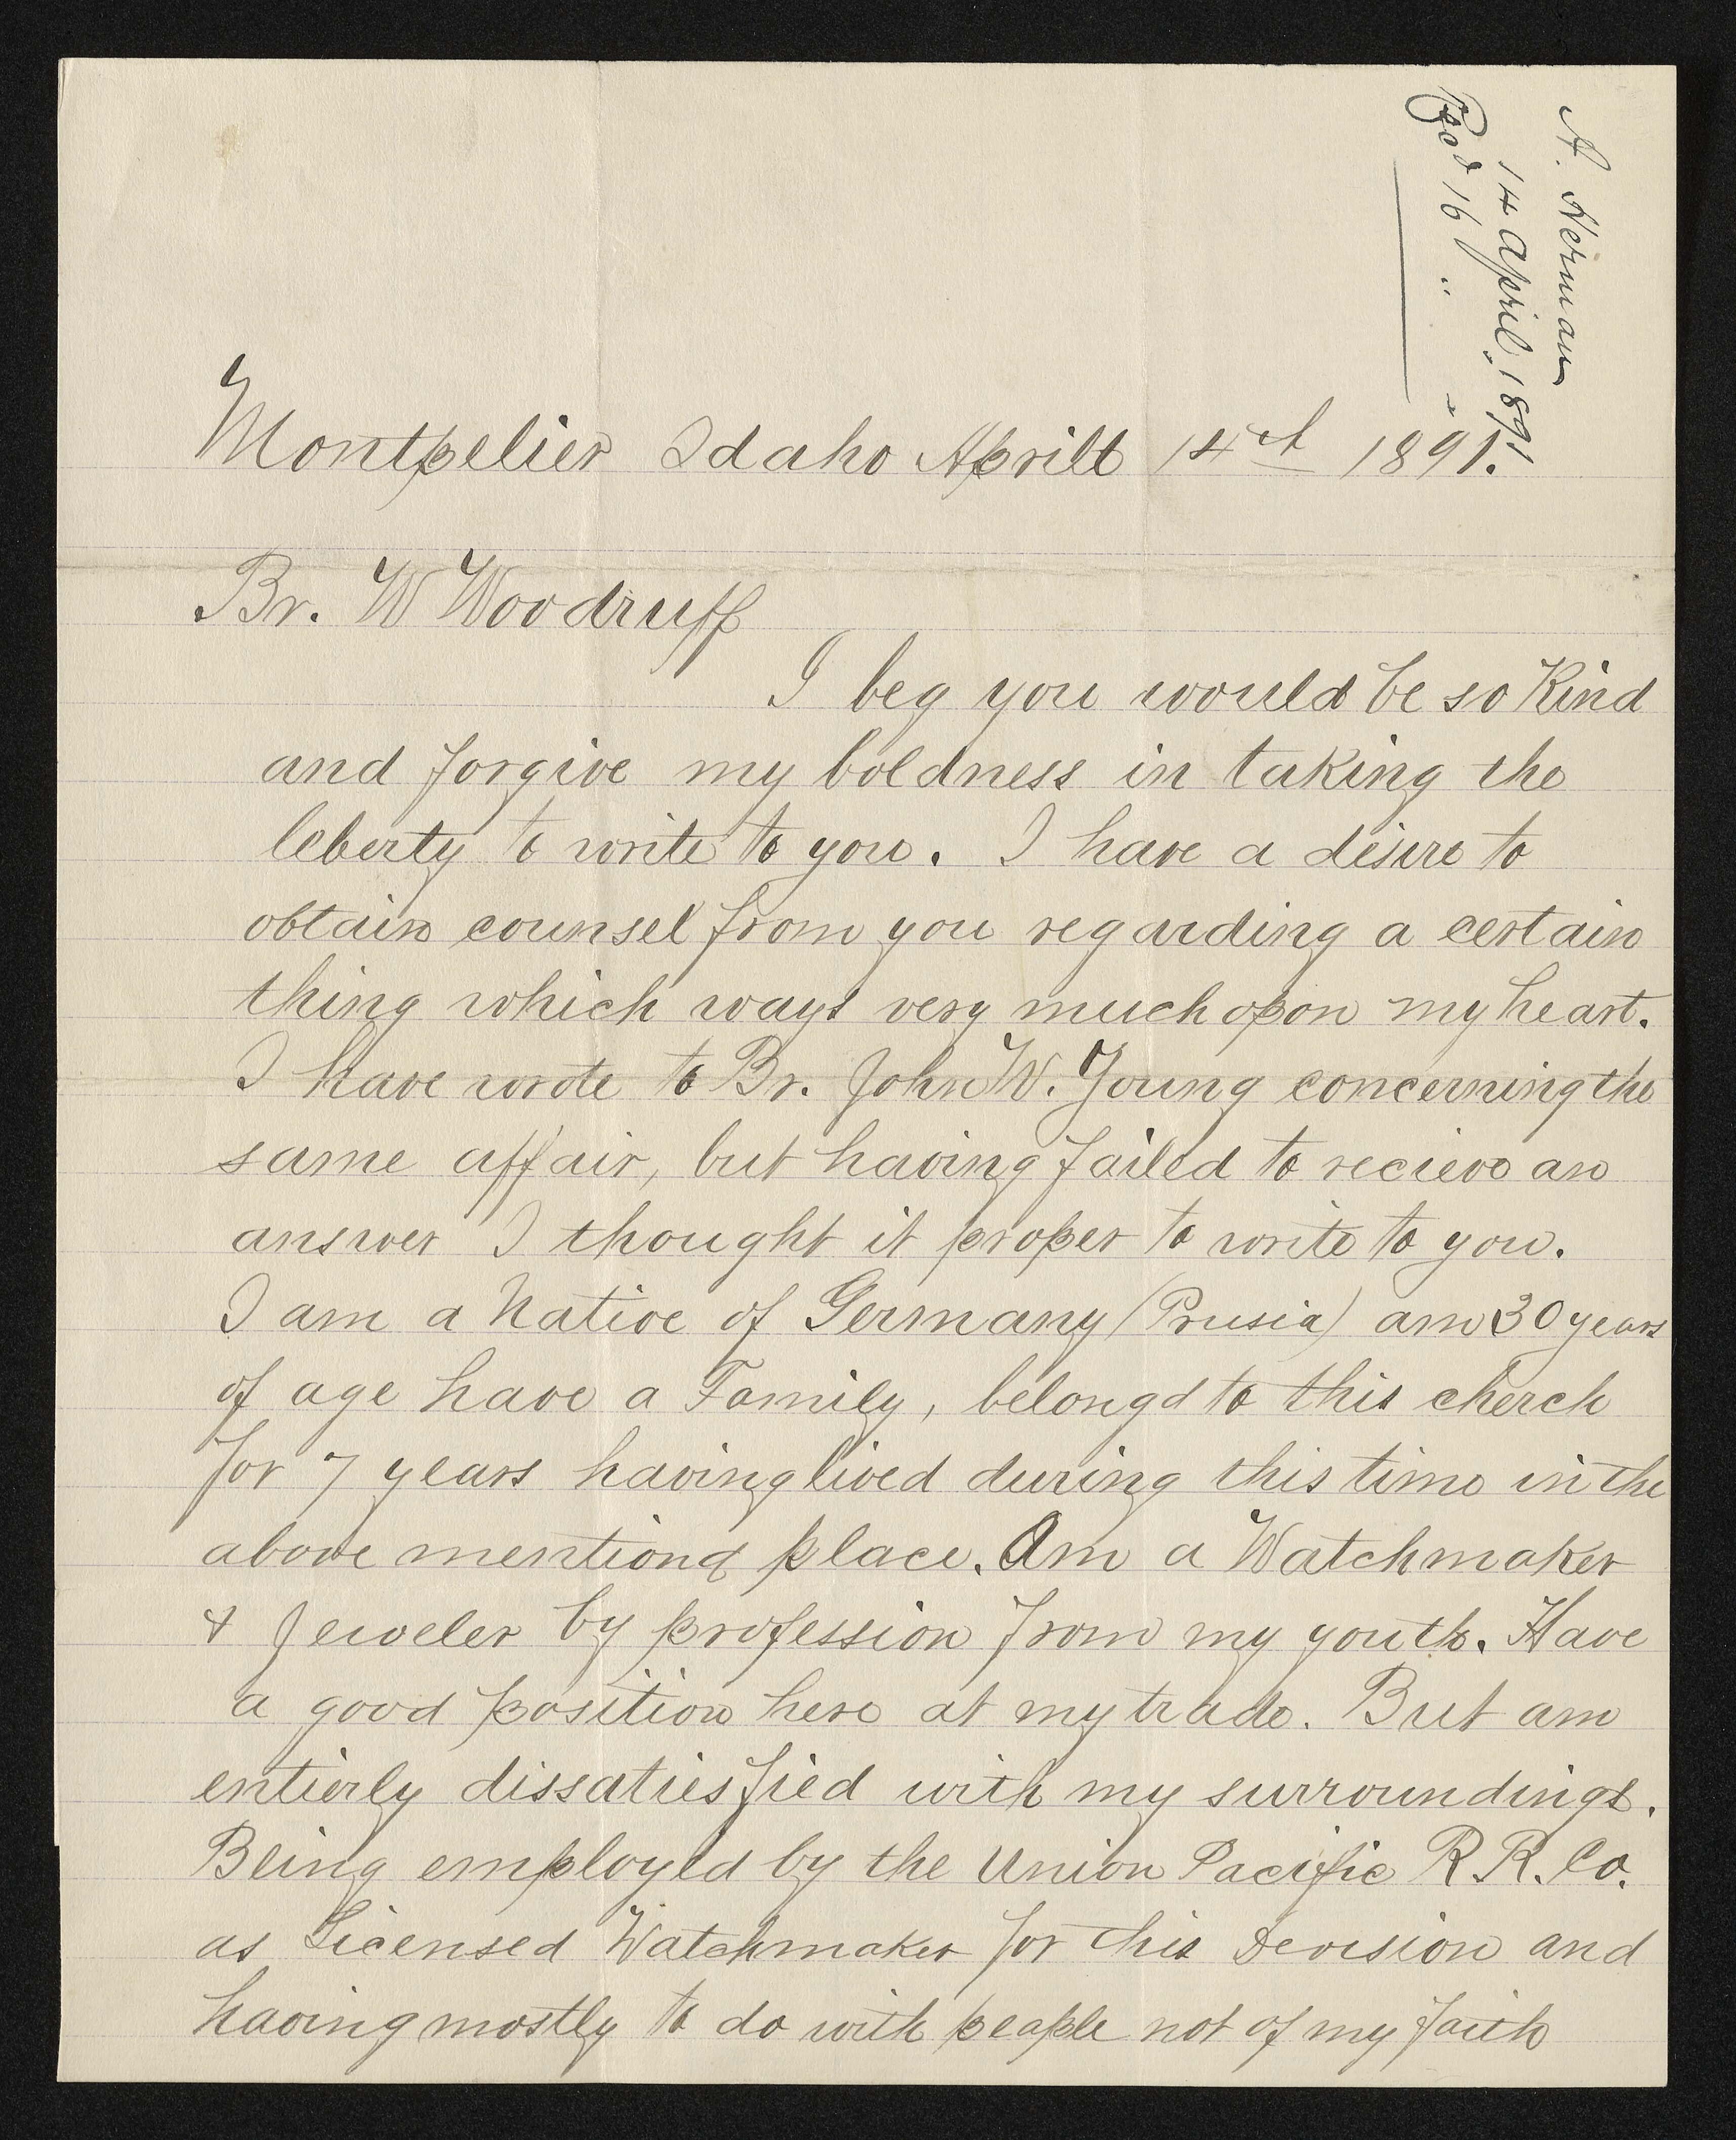 A. Herman
14 April, 1891
Recd 16 "  "
Montpelier Idaho Aprill 14th 1891.
Br. W Woodruff
I beg you would be so Kind
and forgive my boldness in taking the
leberty to write to you. I have a desire to
obtain counsel from you regarding a certain
thing which ways very much opon my heart.
I have wrote to Br. John W. Young concerning the
same affair, but having failed to recieve an
answer I thought it proper to write to you.
I am a Native of Germany (Prusia) am 30 years
of age have a Family, belongd to this cherch
for 7 years having lived during this time in the
above mentiond place. Am a Watchmaker
& Jeweler by profession from my youth. Have
a good position here at my trade. But am
entierly dissatiesfied with my surroundings.
Being employed by the Union Pacific R R. Co.
as Licensed Watchmaker for this Devision and
having mostly to do with people not of my faith